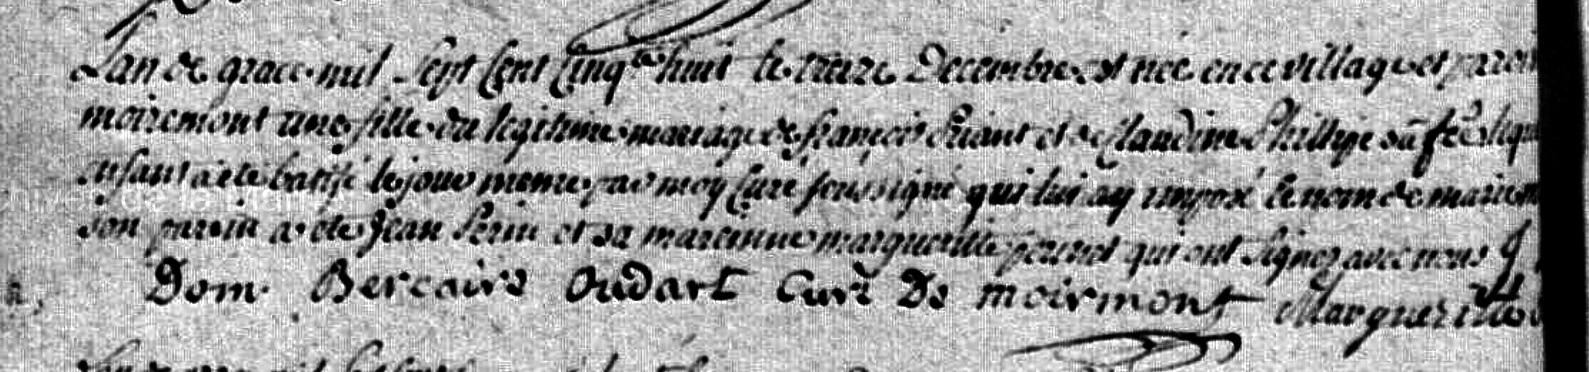 Lan de grace mil sept cent cinq.te huit le treize Decembre est neé en ce village et paroi
moiremont une fille du legitime mariage de françois et de Claudine Phillipe sa fe
enfant a eté batisé le jour meme par moy Curé soussigné qui lui ay imposé le nom de marie
son parein a eté Jean Perin et sa mareinne margueritte qui ont signez avec nous
Dom Bercaire Oudart Curé De moirmont Margueritte